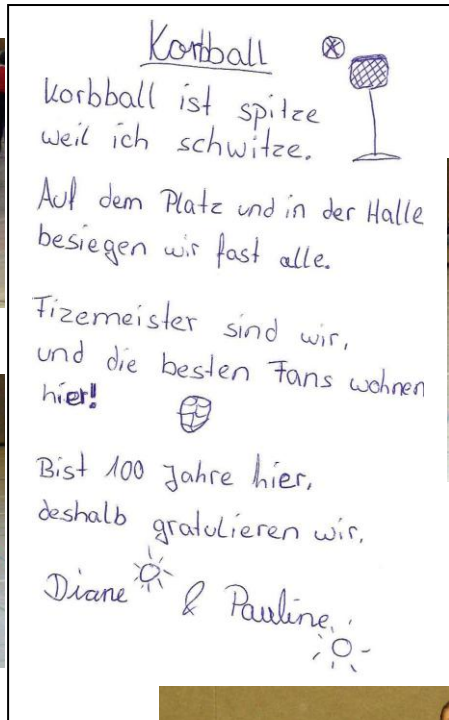 Korbball
Korbball ist spitze
weil ich schwitze.
Auf dem Platz und in der Halle
besiegen wir fast alle.
Fizemeister sind wir,
und die besten Fans wohnen
hier!
Bist 100 Jahre hier,
deshalb gratulieren wir,
Diane & Pauline